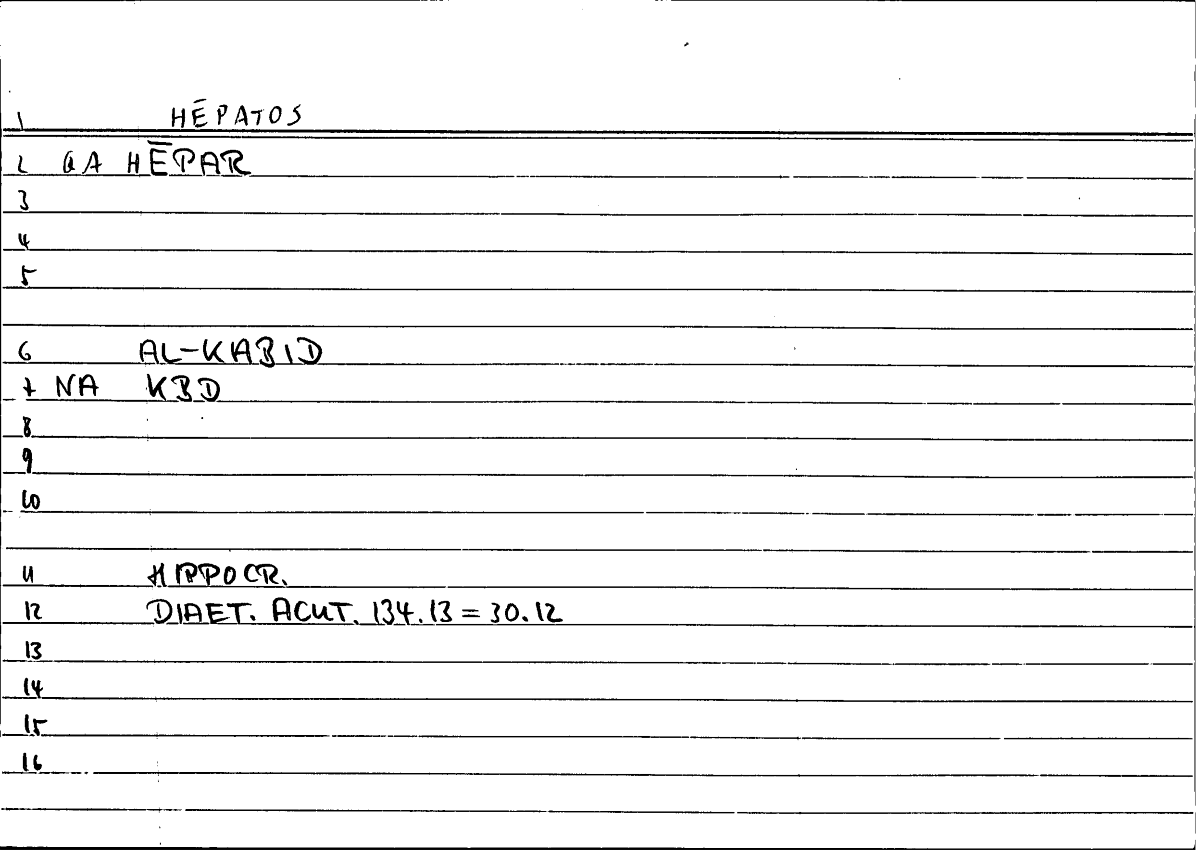 1 HĒPATOS
2 QA HĒPAR
3
4
5
6 AL-KABID
7 NA KBD
8
9
10
11 HIPPOCR.
12 DIAET. ACUT. 134.13 = 30.12
13
14
15
16